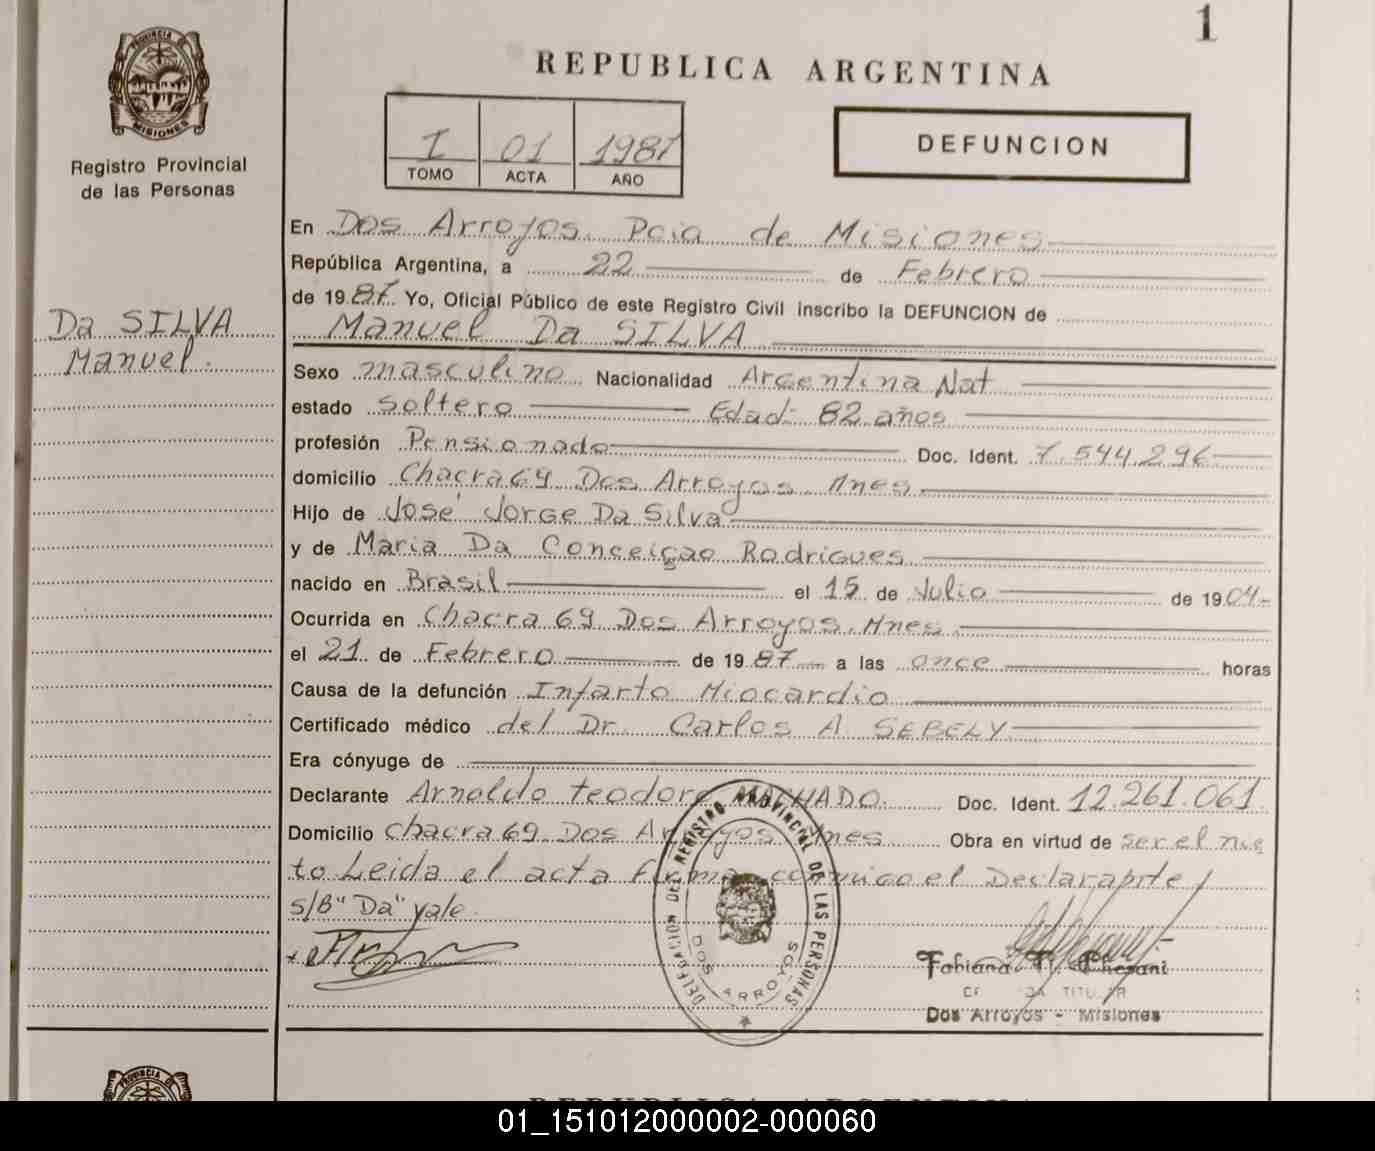 1
PROVINCIA DE
MISIONES
Registro Provincial
de las Personas
REPUBLICA ARGENTINA
I 01 1987
TOMO ACTA AÑO
DEFUNCION
Da SILVA
Manuel.
En Dos Arroyos. Pcia de Misiones
República Argentina, a 22 de Febrero
de 1987. Yo, Oficial Público de este Registro Civil inscribo la DEFUNCION de
Manuel Da SILVA
Sexo masculino Nacionalidad Argentina Nat
estado Soltero Edad- 82 años
profesión Pensionado Doc. Ident. 7.544.296
domicilio Chacra 69 Dos Arroyos Mnes.
Hijo de José Jorge Da Silva
y de Maria Da Conceiçao Rodrigues
nacido en Brasil el 15 de Julio de 1904-
Ocurrida en Chacra 69 Dos Arroyos. Mnes.
el 21 de Febrero de 1987 a las once horas
Causa de la defunción Infarto Miocardio
Certificado médico del Dr. Carlos A SEBELY
Era cónyuge de
Declarante Arnoldo Teodoro MACHADO. Doc. Ident. 12.261.061
Domicilio Chacra 69 Dos Arroyos Mnes Obra en virtud de ser el nie
to Leida el acta firma conmigo el Declarante/
s/B "Da" vale.
DELEGACION DEL REGISTRO PROVINCIAL DE LAS PERSONAS
DOS ARROYOS
Fabiana
TITULAR
Dos Arroyos - Misiones
PROVINCIA DE
REPUBLICA ARGENTINA
01_151012000002-000060